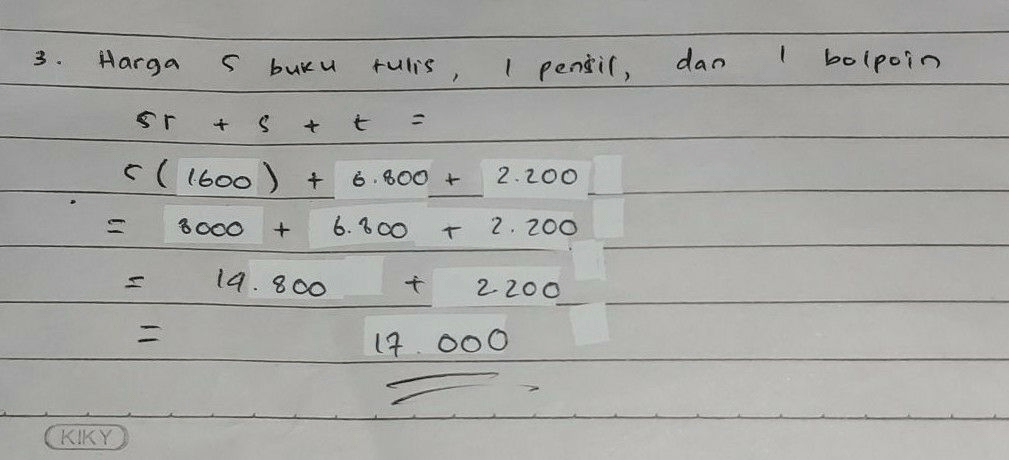 3. Harga 5 buku tulis, 1 pensil, dan 1 bolpoin
5r + s + t =
5 (1600) + 6.800 + 2.200
= 8000 + 6.800 + 2.200
= 14.800 + 2.200
= 17.000
KIKY